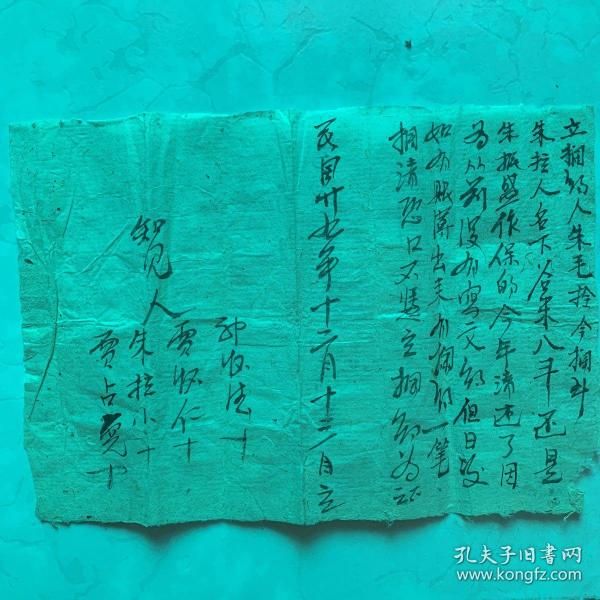 立捆約人朱毛拴今捆到
朱拉人名下谷米八斗还是
朱振基作保的今年清还了因
为从前没有写文约但日后
如有账簿出来有捆约一笔
捆清恐口不凭立捆約为证
民国廿七年十二月十三日立
知见人
怀德十
贾怀仁十
朱拉小十
贾占魁十
孔夫子旧书网
www.kongfz.com